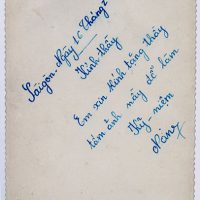 Saigon - Ngày 16 Tháng 2
Kính thầy
Em xin kính tặng thầy
tấm ảnh này để làm
Kỷ-niệm